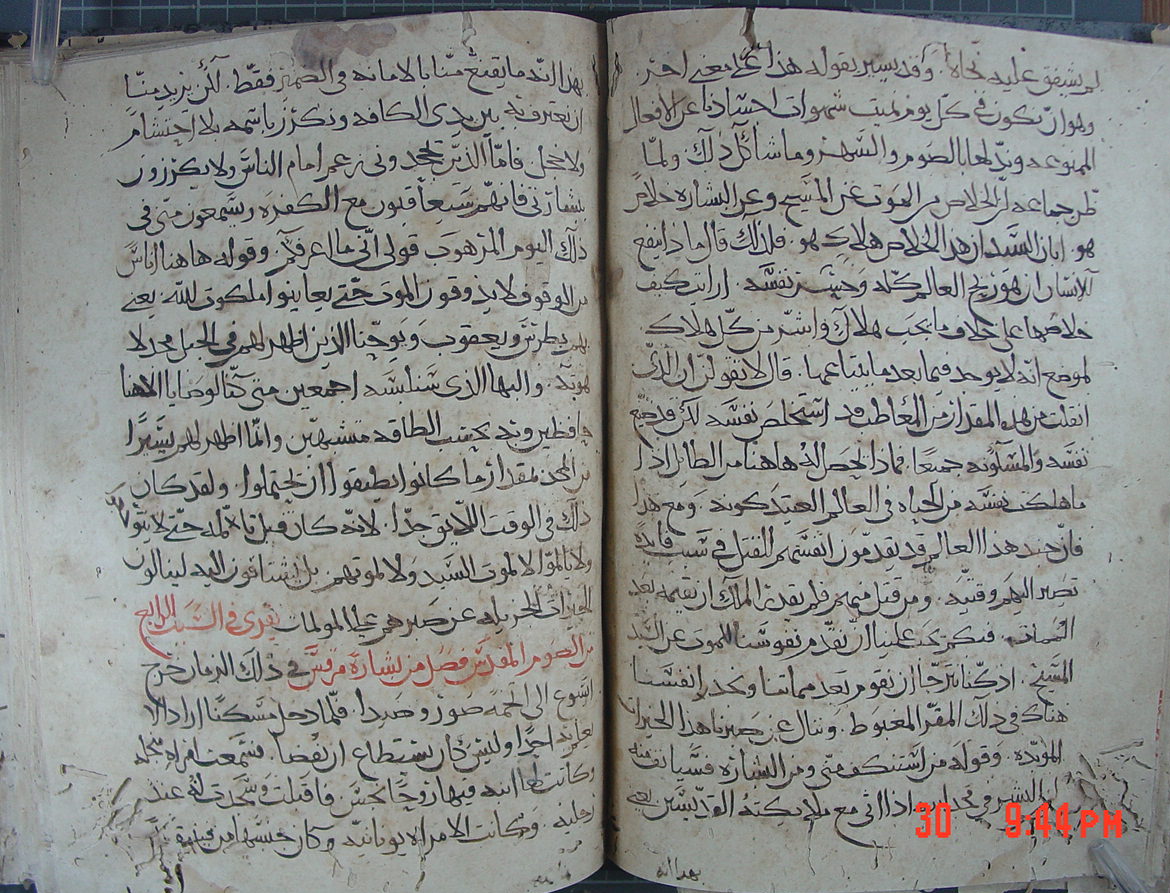 لم يشفق عليه نجاه. وقد يسير بقوله هذا على معنى اخر
وهو ان نكون في كل يوم نميت شهوات اجسادنا عن الافعال
الممنوعه ونذلها بالصوم والسهر وما شاكل ذلك. ولما
ظن جماعه ان الخلاص من الموت عن المسيح وعن البشاره خلاص
هو. ابان السيد ان هذا الخلاص هلاك هو. فلذلك قال ما ذا ينفع
للانسان ان هو ربح العالم كله وخسر نفسه. ارايت كيف
خلاصها على خلاف ما يجب هلاك واشر من كل هلاك
لموضع انه لا يوجد فيما بعد ما يتباعها. قال لا تقولن ان الذي
انفلت من هذه المقدار من المعاطب قد استخلص نفسه لكن قد ضع
نفسه والمسكونه جميعا. فماذا يحصل له هاهنا من الطائل اذا
ما هلكت نفسه من الحياه في العالم العتيد كونه. ومع هذا
فان جند هذا العالم قد يقدمون انفسهم للقتل في سبب فايده
تصير اليهم وقتيه. ومن قتل منهم فلم يقدر الملك ان يقيمه بعد
الممات. فكم يجب علينا ان نقدم نفوسنا للموت عن السيد
المسيح. اذ كنا نترجا ان نقوم بعد مماتنا ونجد انفسنا
هناك في ذلك المقر المغبوط. وننال عن صبرنا هذا الخيرات
الموبده. وقوله من استنكف مني ومن البشاره فسيانفه
ابن البشر في مجد ابيه اذا اتى مع ملايكته القديسين يعني
بهذا انه
بهذا انه ما يقنع منا بالامانه في الضمير فقط. لكن يريد منا
ان نعترف به بين يدي الكافه ونكرز باسمه بلا احتشام
ولا خجل. فاما الذين يجحدوني زعم امام الناس ولا يكرزون
ببشارتي فانهم سيعاقبون مع الكفره ويسمعون مني في
ذلك اليوم المرهوب قولي اني ما اعرفكم. وقوله هاهنا اناس
من الوقوف لا يذوقون الموت حتى يعاينوا ملكوت الله. يعني
بهم بطرس ويعقوب ويوحنا الذين اظهر لهم في الجبل مجد لا
هوته. والبها الذي سناشده اجمعين متى كنا لوصايا الاهنا
حافظين وبه بحسب الطاقه متشبهين وانما اظهر لهم يسيرا
من المجد بمقدار ما كانوا يطيقوا ان يحتملوا. ولقد كان
ذلك في الوقت اللايق جدا. لانه كان قبل تالمه حتى لا يتو
ولا يالموا لا لموت السيد ولا لموتهم بل يشتاقون اليه لينالون
الخيرات الجزيله عن صبرهم على المولمات يقرى في السبت الرابع
من الصوم المقدس فصل من بشارة مرقس في ذلك الزمان خرج
ايسوع الى تخمه صور وصيدا. فلما دخل مسكنا اراد الا
يعلم به احدا وليس كان يستطاع ان يخفا. فسمعت امراه بخبره
وكانت لها ابنه فيها روحا نجس فاقبلت وسجدت له عند
رجليه. وكانت الامراه يونانيه وكان جنسها من فينيقي
30 9:44 PM